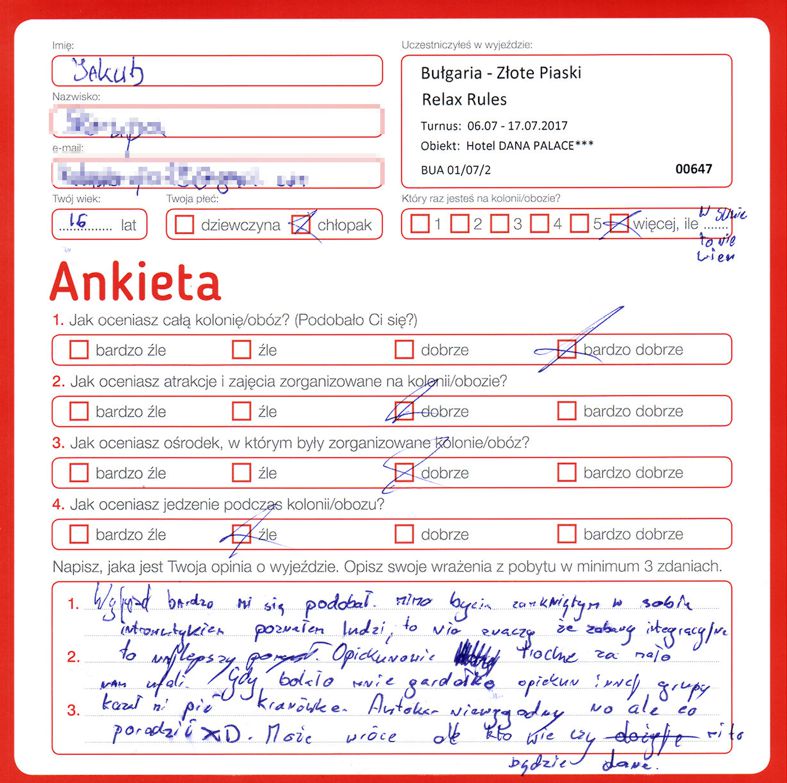 Imię:
Uczestniczyłeś w wyjeździe:
Jakub
Bułgaria - Złote Piaski
Nazwisko:
Relax Rules
Turnus: 06.07 - 17.07.2017
e-mail:
Obiekt: Hotel DANA PALACE***
BUA 01/07/2 00647
Twój wiek: Twoja płeć: Który raz jesteś na kolonii/obozie?
16 lat dziewczyna chłopak 1 2 3 4 5 więcej, ile w sumie
to nie
wiem
Ankieta
1. Jak oceniasz całą kolonię/obóz? (Podobało Ci się?)
bardzo źle źle dobrze bardzo dobrze
2. Jak oceniasz atrakcje i zajęcia zorganizowane na kolonii/obozie?
bardzo źle źle dobrze bardzo dobrze
3. Jak oceniasz ośrodek, w którym były zorganizowane kolonie/obóz?
bardzo źle źle dobrze bardzo dobrze
4. Jak oceniasz jedzenie podczas kolonii/obozu?
bardzo źle źle dobrze bardzo dobrze
Napisz, jaka jest Twoja opinia o wyjeździe. Opisz swoje wrażenia z pobytu w minimum 3 zdaniach.
1. Wyjazd bardzo mi się podobał. mimo bycia zamkniętym w sobie
introwertykiem poznałem ludzi, to nie znaczy że zabawy integracyjne
2. to najlepszy pomysł. Opiekunowie troche za mało
nam ufali. Gdy bolało mnie gardełko opiekun innej grupy
3. kazał mi pić Kranówke. Autokar niewygodny no ale co
poradzić XD. Może wróce ale kto wie czy mi to
będzie dane.